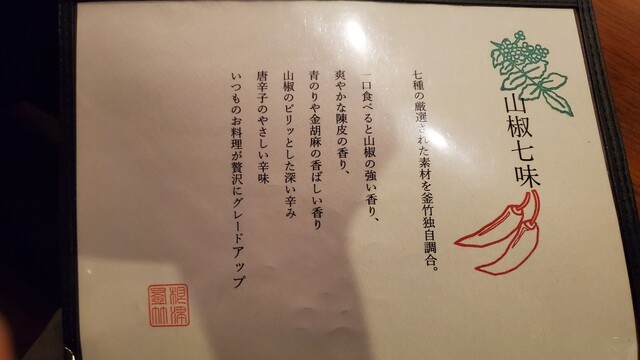 山椒七味
七種の厳選された素材を釜竹独自調合。
一口食べると山椒の強い香り、
爽やかな陳皮の香り、
青のりや金胡麻の香ばしい香り
山椒のビリッとした深い辛み
唐辛子のやさしい辛味
いつものお料理が贅沢にグレードアップ